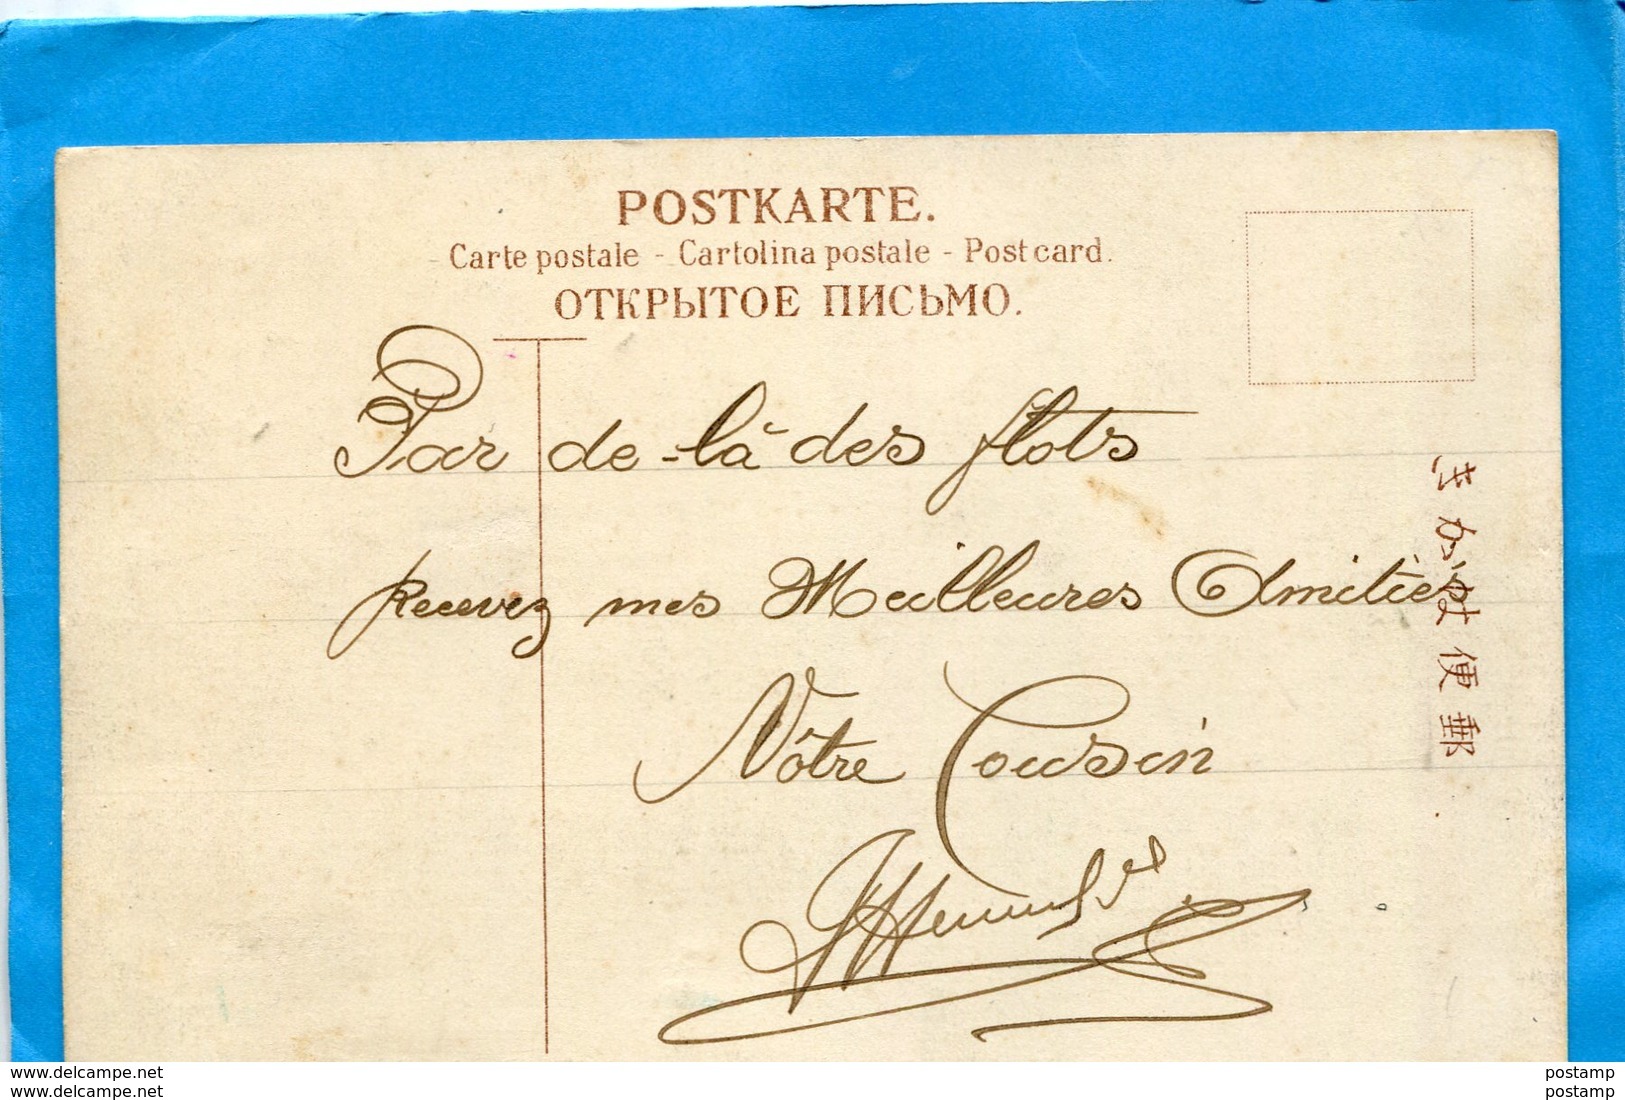 POSTKARTE.
Carte postale - Cartolina postale - Postcard.
ОТКРЫТОЕ ПИСЬМО.
Par de-là des flots
Recevez mes Meilleures Amitiés
Vôtre Cousin
郵便はかき
www.delcampe.net
www.delcampe.net
postamp
postamp